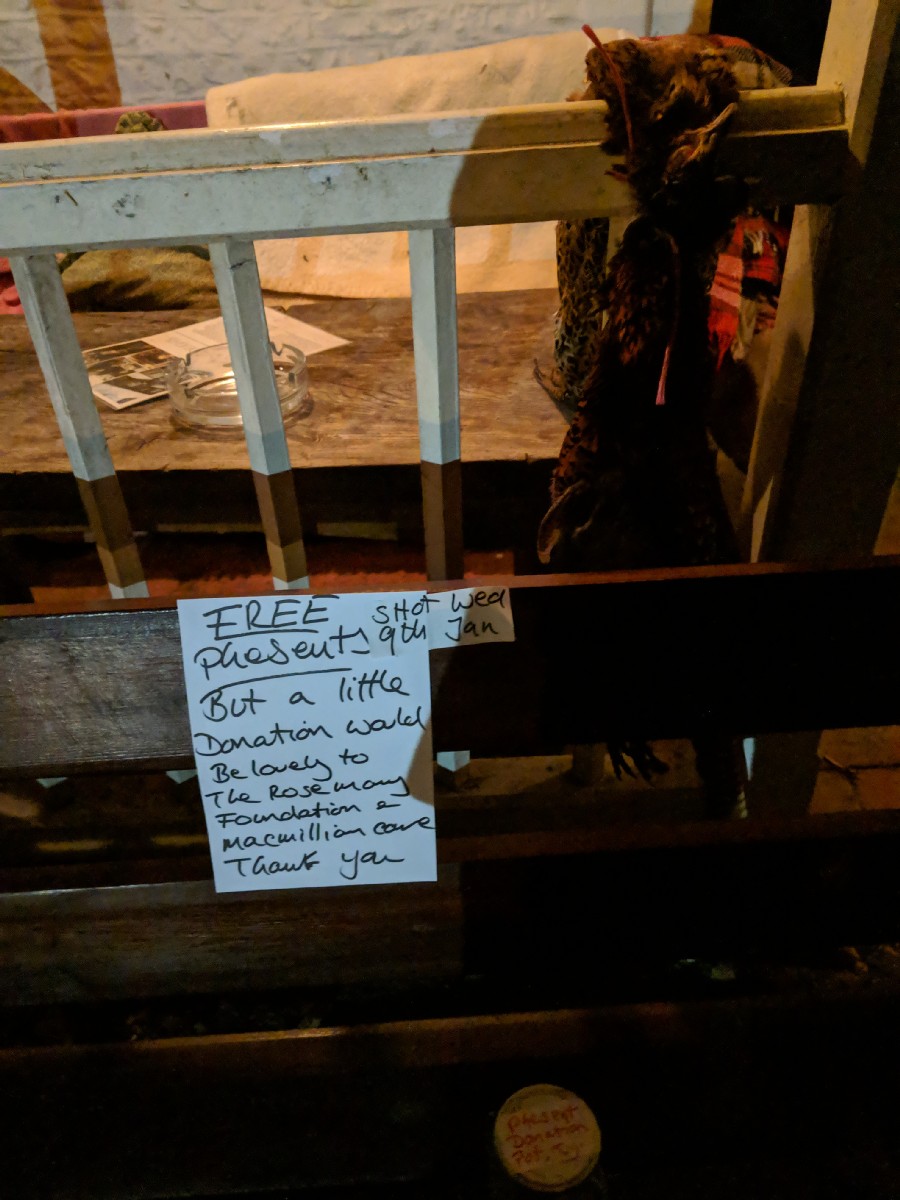 FREE
phesents
SHot Wed
9th Jan
But a little
Donation would
Be lovely to
The Rosemary
Foundation &
macmillian care
Thank you
phesent
Donation
Pot. Ty